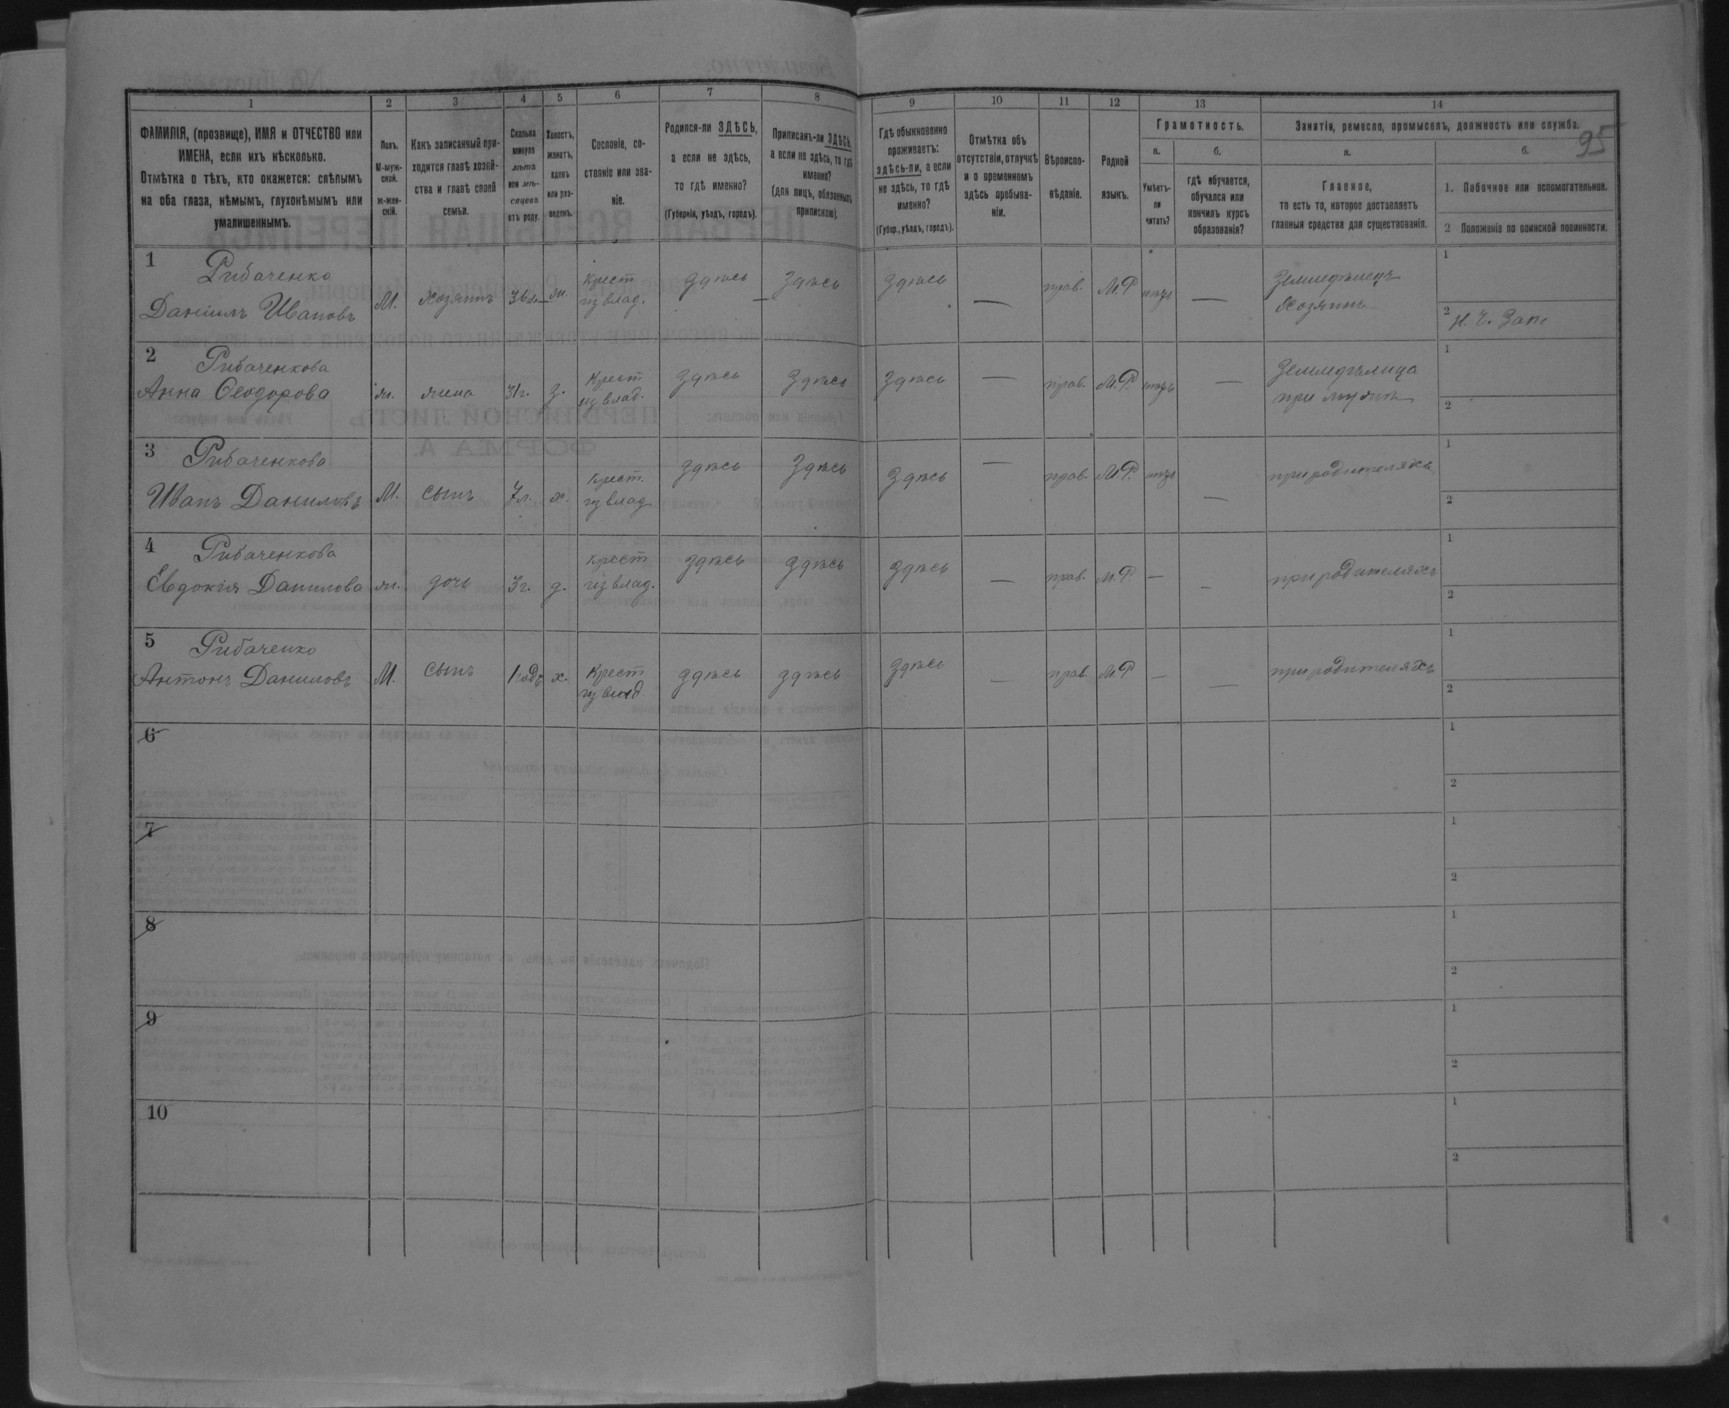 95
1 2 3 4 5 6 7 8 9 10 11 12 13 14
ФАМИЛІЯ, (прозвище), ИМЯ и ОТЧЕСТВО или
ИМЕНА, если ихъ нѣсколько.
Отмѣтка о тѣхъ, кто окажется: слѣпымъ
на оба глаза, нѣмымъ, глухонѣмымъ или
умалишеннымъ.
Полъ.
М-муж-
ской.
ж-жен-
скій.
Какъ записанный при-
ходится главѣ хозяй-
ства и главѣ своей
семьи.
Сколько
минуло
лѣтъ
или мѣ-
сяцевъ
отъ роду.
Холостъ,
женатъ,
вдовъ
или раз-
веденъ.
Сословіе, со-
стояніе или зва-
ніе.
Родился-ли ЗДѢСЬ,
а если не здѣсь,
то гдѣ именно?
(Губернія, уѣздъ, городъ).
Приписанъ-ли ЗДѢСЬ,
а если не здѣсь, то гдѣ
именно?
(для лицъ, обязанныхъ
припискою).
Гдѣ обыкновенно
проживаетъ:
здѣсь-ли, а если
не здѣсь, то гдѣ
именно?
(Губер., уѣздъ, городъ).
Отмѣтка объ
отсутствіи, отлучкѣ
и о временномъ
здѣсь пребыва-
ніи.
Вѣроиспо-
вѣданіе.
Родной
языкъ.
Грамотность.
а.
Умѣетъ-
ли
читать?
б.
гдѣ обучается,
обучался или
кончилъ курсъ
образованія?
Занятіе, ремесло, промыселъ, должность или служба.
а.
Главное,
то есть то, которое доставляетъ
главныя средства для существованія.
б.
1. Побочное или вспомогательное.
2 Положеніе по воинской повинности.
1 Рибаченко
Даніилъ Ивановъ М. хозяинъ 36 л. ж. Крест. из влад. здѣсь здѣсь здѣсь — прав. М.Р. — Земледѣлецъ
Хозяинъ
1
2 Н. Ч. Зап.
2 Рибаченкова
Анна Ѳеодорова ж. жена 31 г. з. Крест из влад. здѣсь здѣсь здѣсь — прав. М.Р. — Земледѣлица
при мужѣ
1
2
3 Рибаченкова
Иванъ Даниловъ М. сынъ 7 л. х. Крест. из влад. здѣсь здѣсь здѣсь — прав. М.Р. — при родителяхъ
1
2
4 Рибаченкова
Евдокія Данилова ж. дочь 3 г. д. Крест из влад. здѣсь здѣсь здѣсь — прав. М.Р. — — при родителяхъ
1
2
5 Рибаченко
Антонъ Даниловъ М. сынъ 1 годъ х. Крест из влад здѣсь здѣсь здѣсь — прав. М.Р — — при родителяхъ
1
2
6
1
2
7
1
2
8
1
2
9
1
2
10
1
2